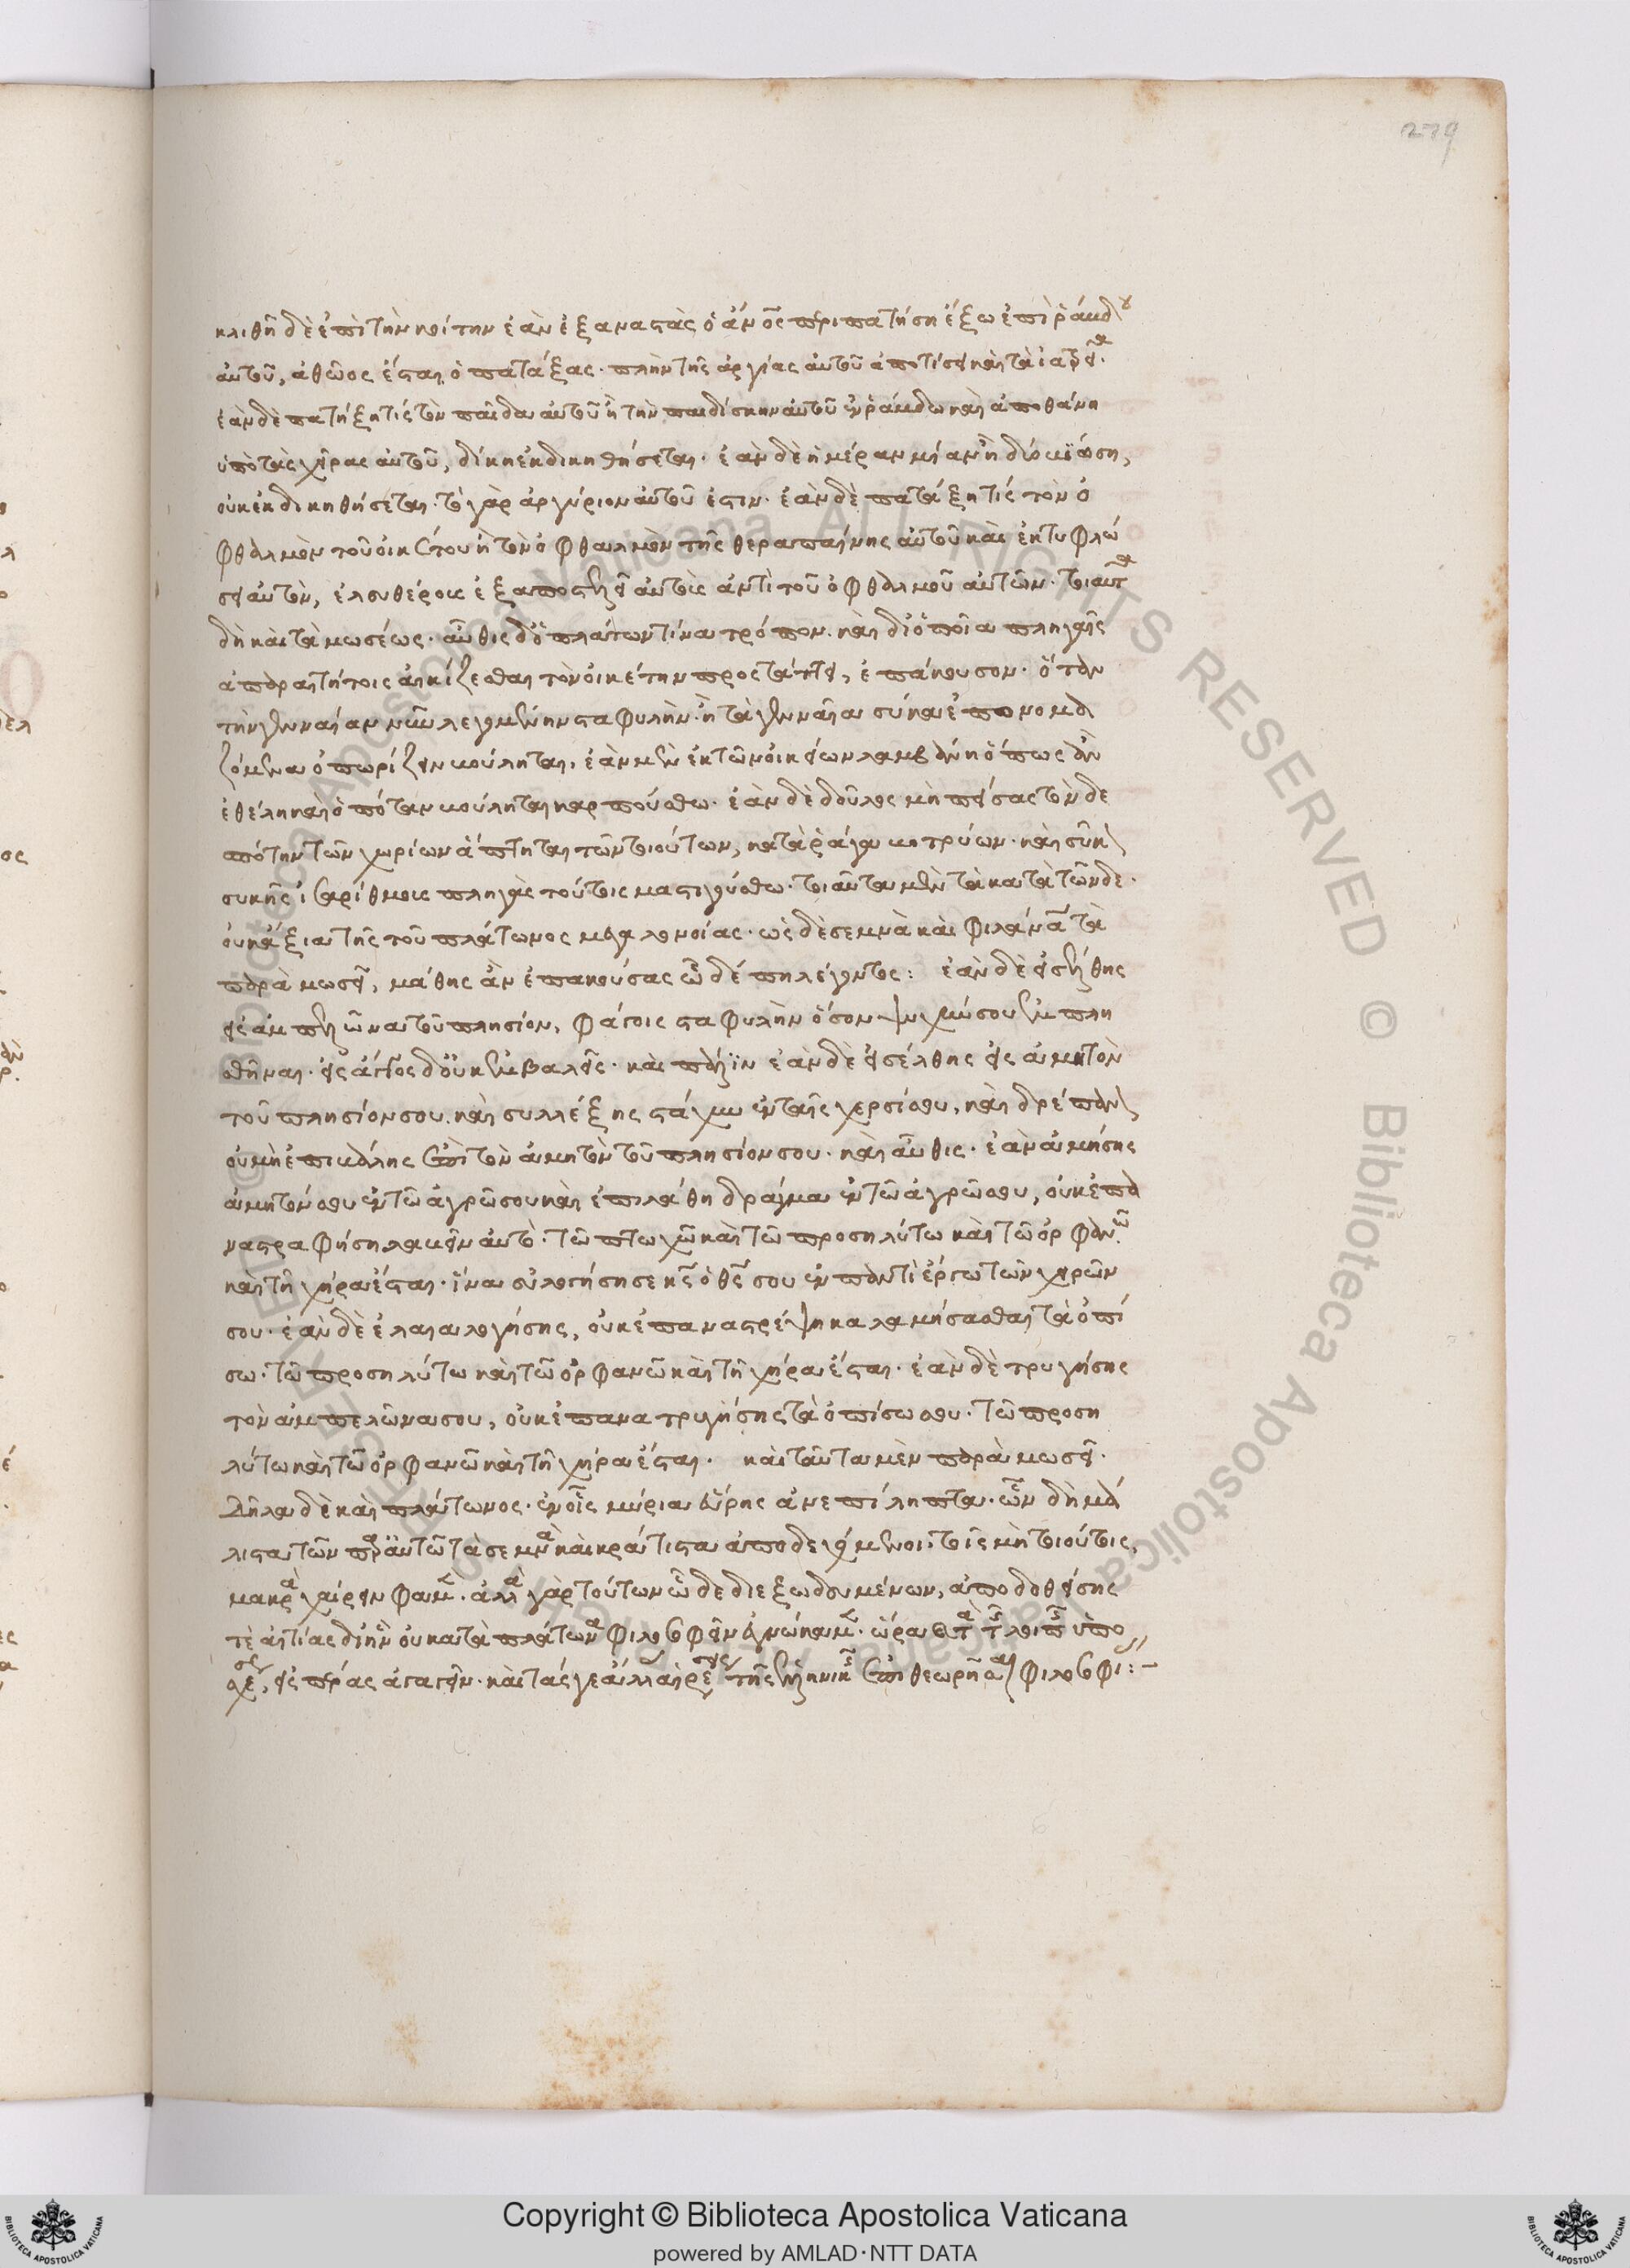 279
κλιθῆ δὲ ἐπὶ τὴν κοίτην ἐὰν ἐξαναστὰς ὁ ἄνος περιπατήση ἔξω ἐπὶ ῥάβδου
αὐτοῦ, ἀθῶος ἔσται ὁ πατάξας· πλὴν τῆς ἀργίας αὐτοῦ ἀποτίσει καὶ τὰ ἰατρεῖα·
ἐὰν δὲ πατάξη τίς τὸν παῖδα αὐτοῦ ἢ τὴν παιδίσκην αὐτοῦ ἐν ῥάβδω καὶ ἀποθάνη
ὑπὸ τὰς χεῖρας αὐτοῦ, δίκη ἐκδικηθήσεται· ἐὰν δὲ ἡμέραν μίαν ἢ δύο βιώση,
οὐκ ἐκδικηθήσεται· τὸ γὰρ ἀργύριον αὐτοῦ ἐστιν· ἐὰν δὲ πατάξη τίς τὸν ὀ
φθαλμὸν τοῦ οἰκέτου ἢ τὸν ὀφθαλμὸν τῆς θεραπαίνης αὐτοῦ καὶ ἐκτυφλώ
ση αὐτὸν, ἐλευθέρους ἐξαποστελεῖ αὐτοὺς ἀντὶ τοῦ ὀφθαλμοῦ αὐτῶν· τοιαῦτα
δὴ καὶ τὰ μωσέως· αὖθις δ' ὁ πλάτων τίνα τρόπον καὶ δι' ὁποῖα πληγαῖς
ἀπαραιτήτοις αἰκίζεσθαι τὸν οἰκέτην προστάττει, ἐπάκουσον· ὃς ἂν
τὴν γενναίαν νῦν λεγομένην σταφυλὴν· ἢ τὰ γενναῖα σύκα ἐπονομα
ζόμενα ὀπωρίζειν βούληται, ἐὰν μὲν ἐκ τῶν οἰκείων λαμβάνη ὅπως ἂν
ἐθέλη καὶ ὁπόταν βούληται καρπούσθω· ἐὰν δὲ δοῦλος μὴ πείσας τὸν δε
σπότην τῶν χωρίων ἅπτηται τῶν τοιούτων, κατὰ ῥάγα βοτρύων καὶ σῦκον
συκῆς ἰσαρίθμους πληγὰς τούτοις μαστιγούσθω· τοιαῦτα μὲν τὰ κατὰ τῶνδε·
οὐκ ἄξια τῆς τοῦ πλάτωνος μεγαλονοίας· ὡς δὲ σεμνὰ καὶ φιλάνα τὰ
παρὰ μωσεῖ, μάθης ἂν ἐπακούσας ὧδέ πη λέγοντος: ἐὰν δὲ εἰσέλθης
εἰς ἀμπελῶνα τοῦ πλησίον, φάγοις σταφυλὴν ὅσον ψυχήν σου ἐμπλη
σθῆναι· εἰς ἄγγος δ' οὐκ ἐμβαλεῖς· καὶ πάλιν ἐὰν δὲ εἰσέλθης εἰς ἀμητὸν
τοῦ πλησίον σου καὶ συλλέξης στάχυ ἐν ταῖς χερσί σου, καὶ δρέπανον
οὐ μὴ ἐπιβάλης ἐπὶ τὸν ἀμητὸν τοῦ πλησίον σου· καὶ αὖθις· ἐὰν ἀμήσης
ἀμητόν σου ἐν τῶ ἀγρῶ σου καὶ ἐπιλάθη δράγμα ἐν τῶ ἀγρῶ σου, οὐκ ἐπα
ναστραφήση λαβεῖν αὐτὸ· τῶ πτωχῶ καὶ τῶ προσηλύτω καὶ τῶ ὀρφανῶ
καὶ τῆ χήρα ἔσται· ἵνα εὐλογήση σε κς ὁ θς σου ἐν παντὶ ἔργω τῶν χειρῶν
σου· ἐὰν δὲ ἐλαιαλογήσης, οὐκ ἐπαναστρέψη καλαμήσασθαι τὰ ὀπί
σω· τῶ προσηλύτω καὶ τῶ ὀρφανῶ καὶ τῆ χήρα ἔσται· ἐὰν δὲ τρυγήσης
τὸν ἀμπελῶνα σου, οὐκ ἐπανατρυγήσης τὰ ὀπίσω σου· τῶ προση
λύτω καὶ τῶ ὀρφανῶ καὶ τῆ χήρα ἔσται· καὶ ταῦτα μὲν παρὰ μωσεῖ·
ἀλλὰ δὲ καὶ πλάτωνος· ἐν οἷς μύρια εὕροις ἀνεπίληπτα· ὧν δὴ μά
λιστα τῶν παρ' αὐτῶ τὰ σεμνὰ καὶ κράτιστα ἀποδεχόμενοι· τοῖς μὴ τοιούτοις,
μακρὰ χαίρειν φαμὲν· ἀλλὰ γὰρ τούτων ὧδε διεξωδευμένων, ἀποδοθείσης
τὲ αἰτίας δι' ἣν οὐ κατὰ πλάτωνα φιλοσοφεῖν ἐγνώκαμεν· ὥρα
εἰς πέρας ἀγαγεῖν· καὶ τάς γε ἄλλας αἱρέσεις τῆς ἑλληνικῆς ἐπιθεωρῆσαι φιλοσοφίας:–